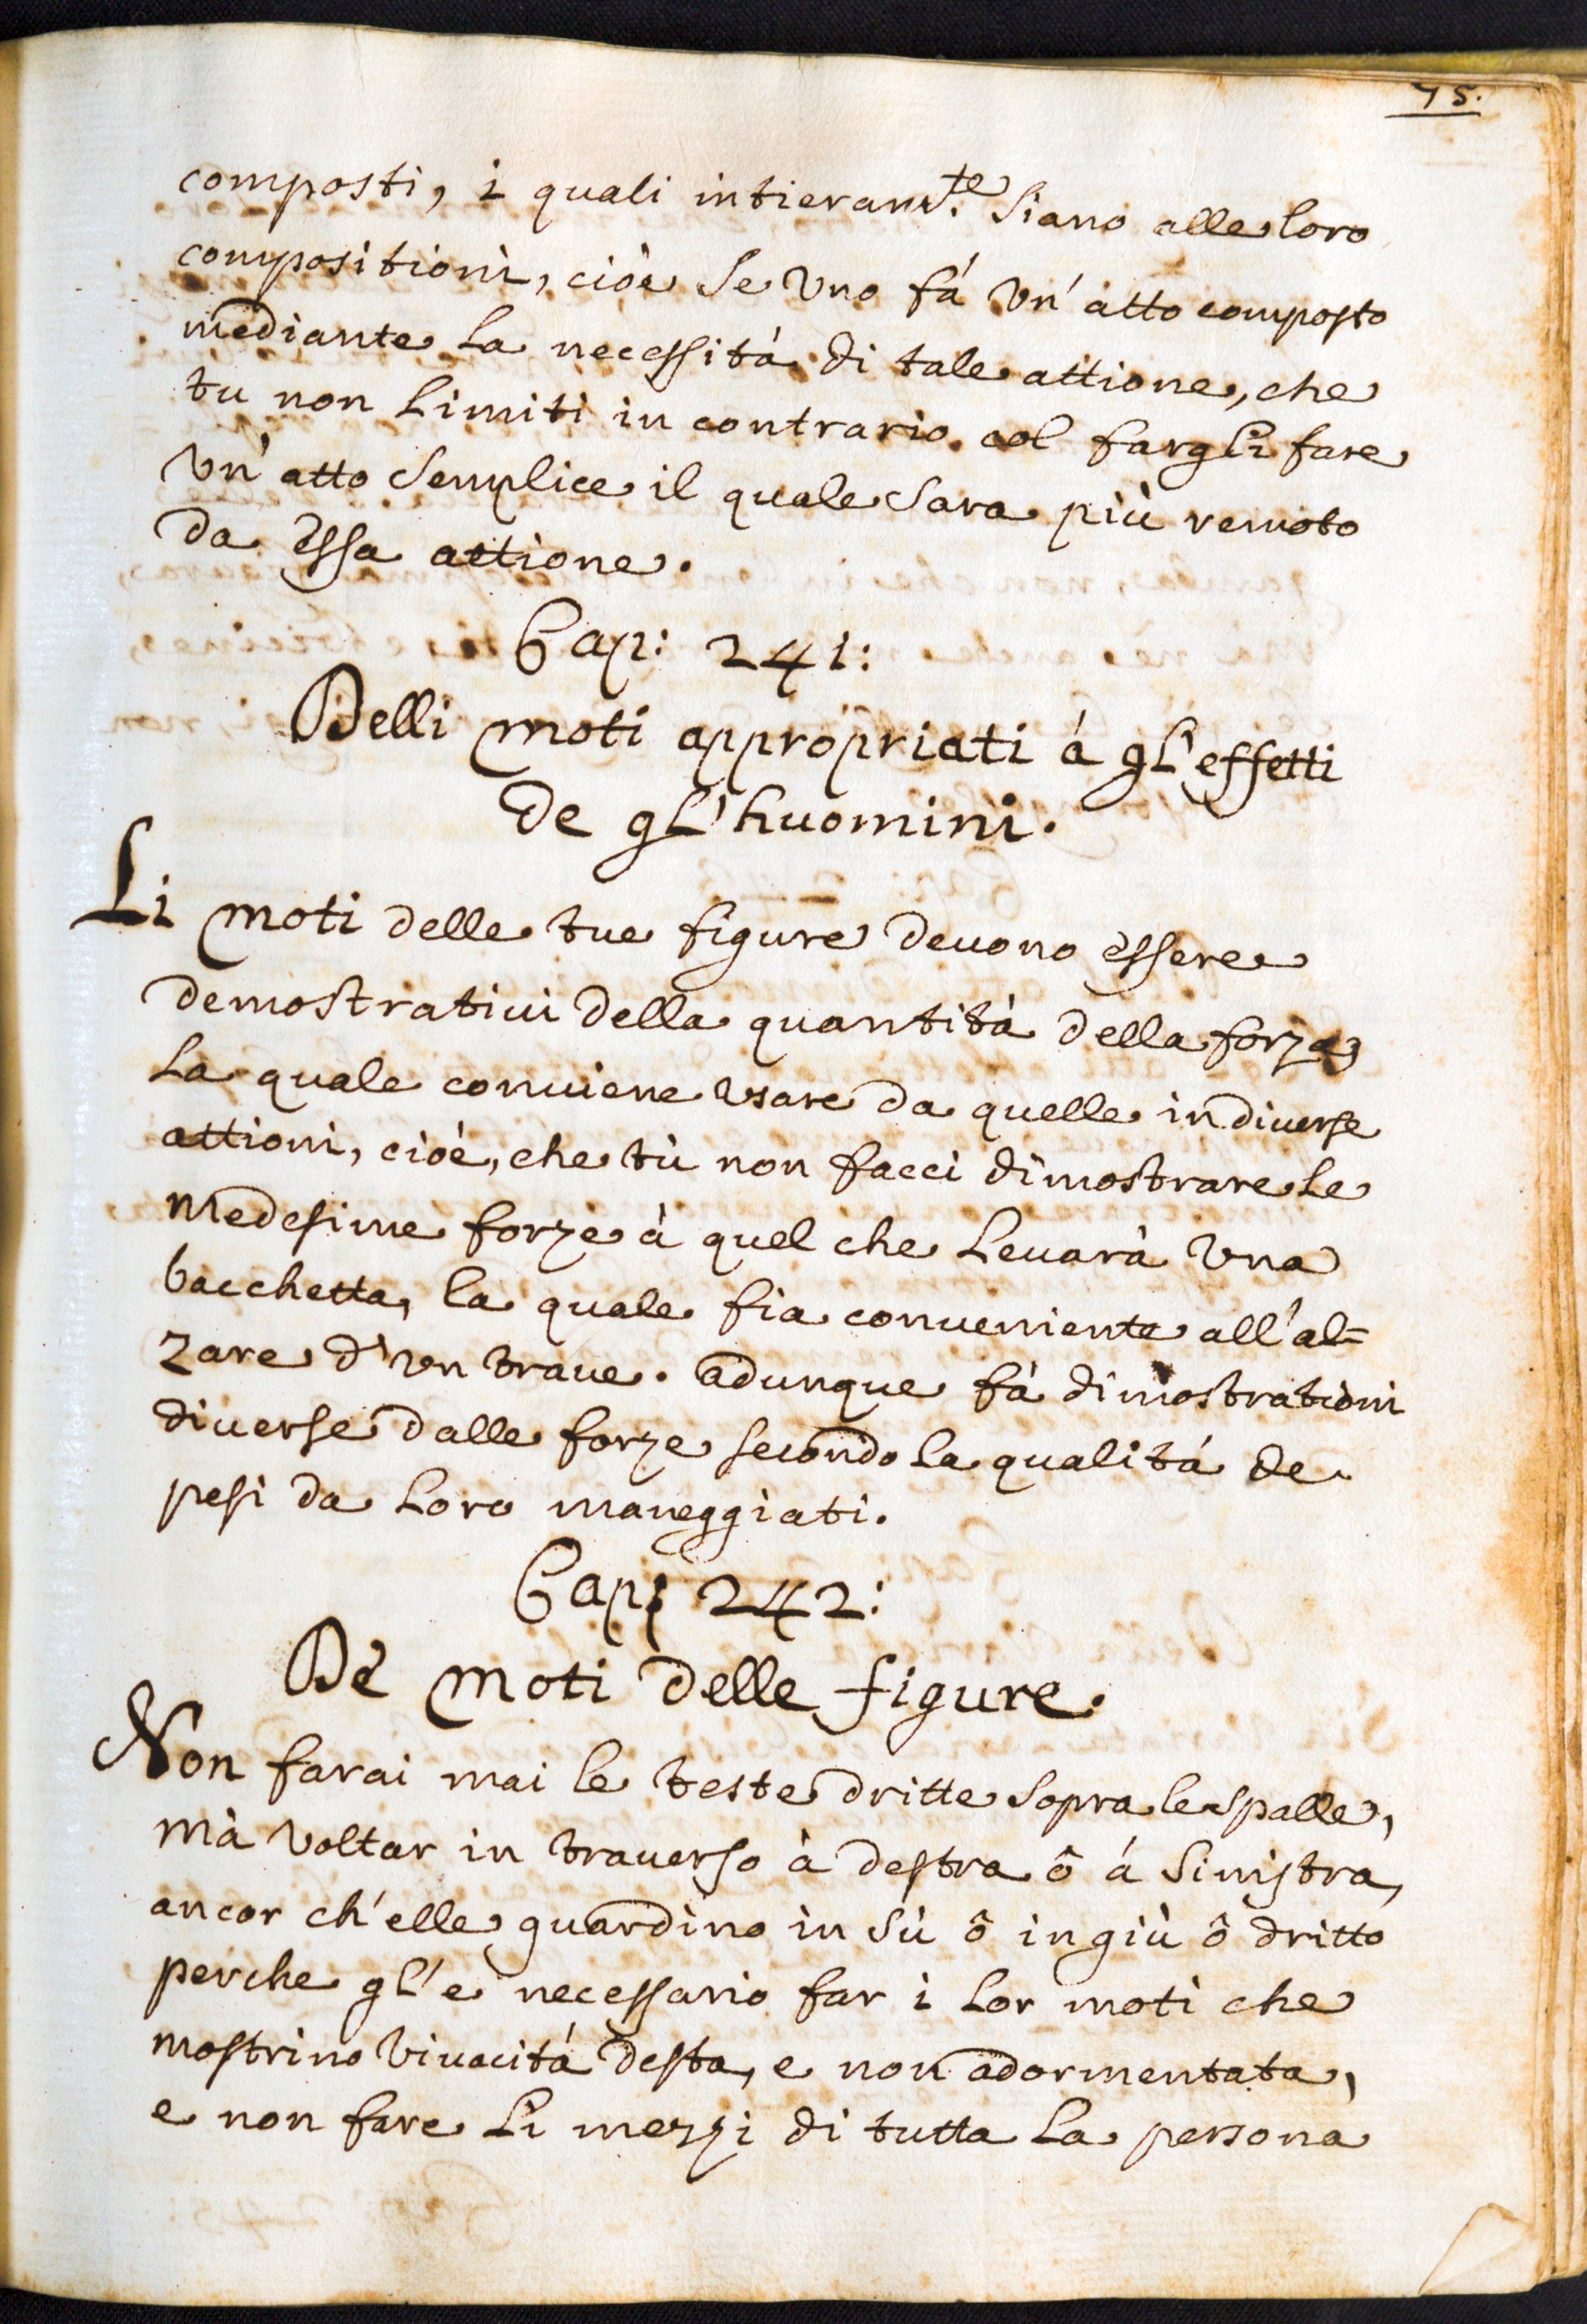 75.
composti, i quali intieram.te Siano alle loro
compositioni, cioè Se Vno fá Vn' atto composto
mediante La necessità di tale attione, che
tu non Limiti in contrario col fargli fare
Vn' atto Semplice il quale Sara più remoto
da essa attione.
Cap: 241:
Belli moti appropriati á gl'effetti
De gl'huomini.
Li moti delle tue figure deuono essere
demostratiui della quantità della forza,
La quale conuiene Vsare da quelle in diuerse
attioni, cioè, che tù non facci dimostrare Le
medesime forze à quel che Leuarà Vna
bacchetta, la quale fia conueniente all'al=
zare d'vn traue. adunque fà dimostrationi
diuerse dalle forze secondo la qualitá de
pesi da Loro maneggiati.
Cap: 242:
De moti delle figure.
Non farai mai le teste dritte sopra le spalle,
mà Voltar in trauerso à destra ô á Sinistra,
ancor ch'elle guardino in Sù ô in giù ô dritto
perche gl'e necessario far i Lor moti che
mostrino Viuacitá desta, e non adormentata,
e non fare Li mezzi di tutta La persona